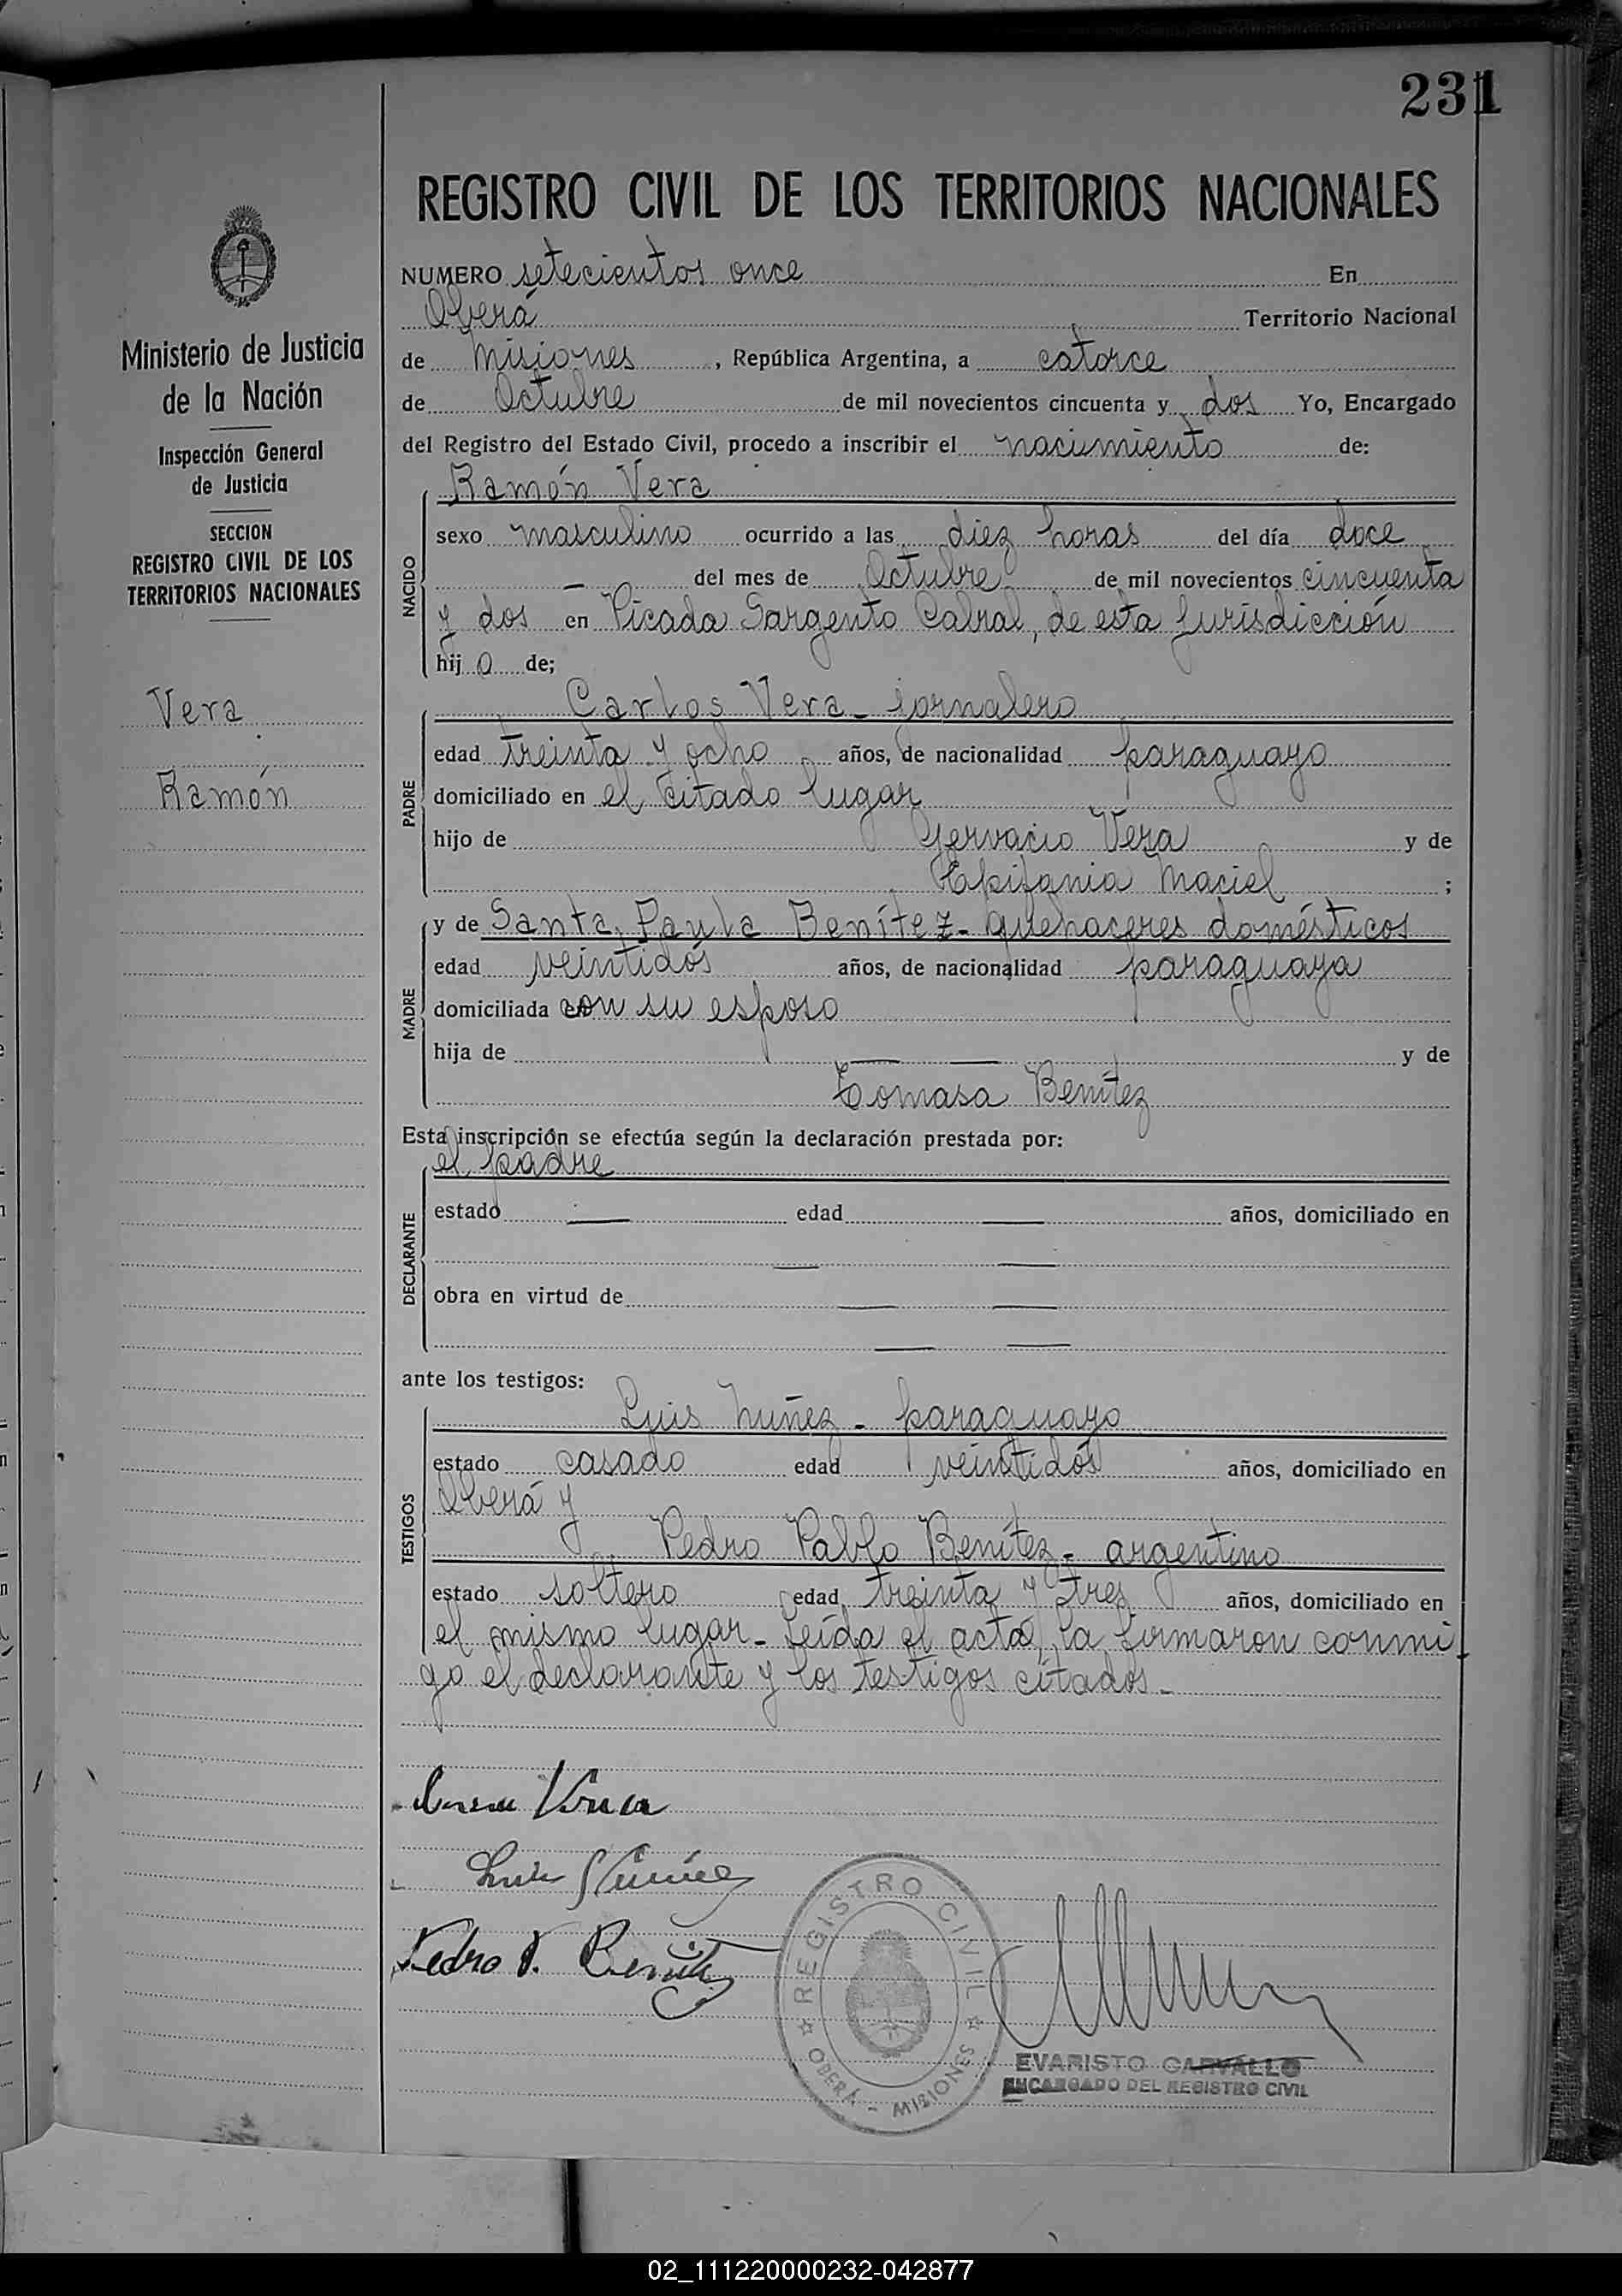 231
REGISTRO CIVIL DE LOS TERRITORIOS NACIONALES
Ministerio de Justicia
de la Nación
Inspección General
de Justicia
SECCION
REGISTRO CIVIL DE LOS
TERRITORIOS NACIONALES
Vera
Ramón
NUMERO setecientos once En
Oberá Territorio Nacional
de Misiones, República Argentina, a catorce
de Octubre de mil novecientos cincuenta y dos Yo, Encargado
del Registro del Estado Civil, procedo a inscribir el nacimiento de:
NACIDO
Ramón Vera
sexo masculino ocurrido a las diez horas del día doce
— del mes de Octubre de mil novecientos cincuenta
y dos en Picada Sargento Cabral, de esta Jurisdicción
hij o de;
PADRE
Carlos Vera - jornalero
edad treinta y ocho años, de nacionalidad paraguayo
domiciliado en el citado lugar
hijo de Gervacio Vera y de
Epifania Maciel ;
MADRE
y de Santa Paula Benítez - quehaceres domésticos
edad veintidós años, de nacionalidad paraguaya
domiciliada con su esposo
hija de — — y de
Tomasa Benítez
Esta inscripción se efectúa según la declaración prestada por:
DECLARANTE
el padre
estado — edad — años, domiciliado en
— —
obra en virtud de — —
— —
ante los testigos:
TESTIGOS
Luis Nuñez - paraguayo
estado casado edad veintidós años, domiciliado en
Oberá y
Pedro Pablo Benítez - argentino
estado soltero edad treinta y tres años, domiciliado en
el mismo lugar - Leída el acta, la firmaron conmi
go el declarante y los testigos citados.-
Luis Nuñez
Pedro P. Benítez
REGISTRO CIVIL
OBERÁ - MISIONES
EVARISTO CARVALLO
ENCARGADO DEL REGISTRO CIVIL
02_111220000232-042877